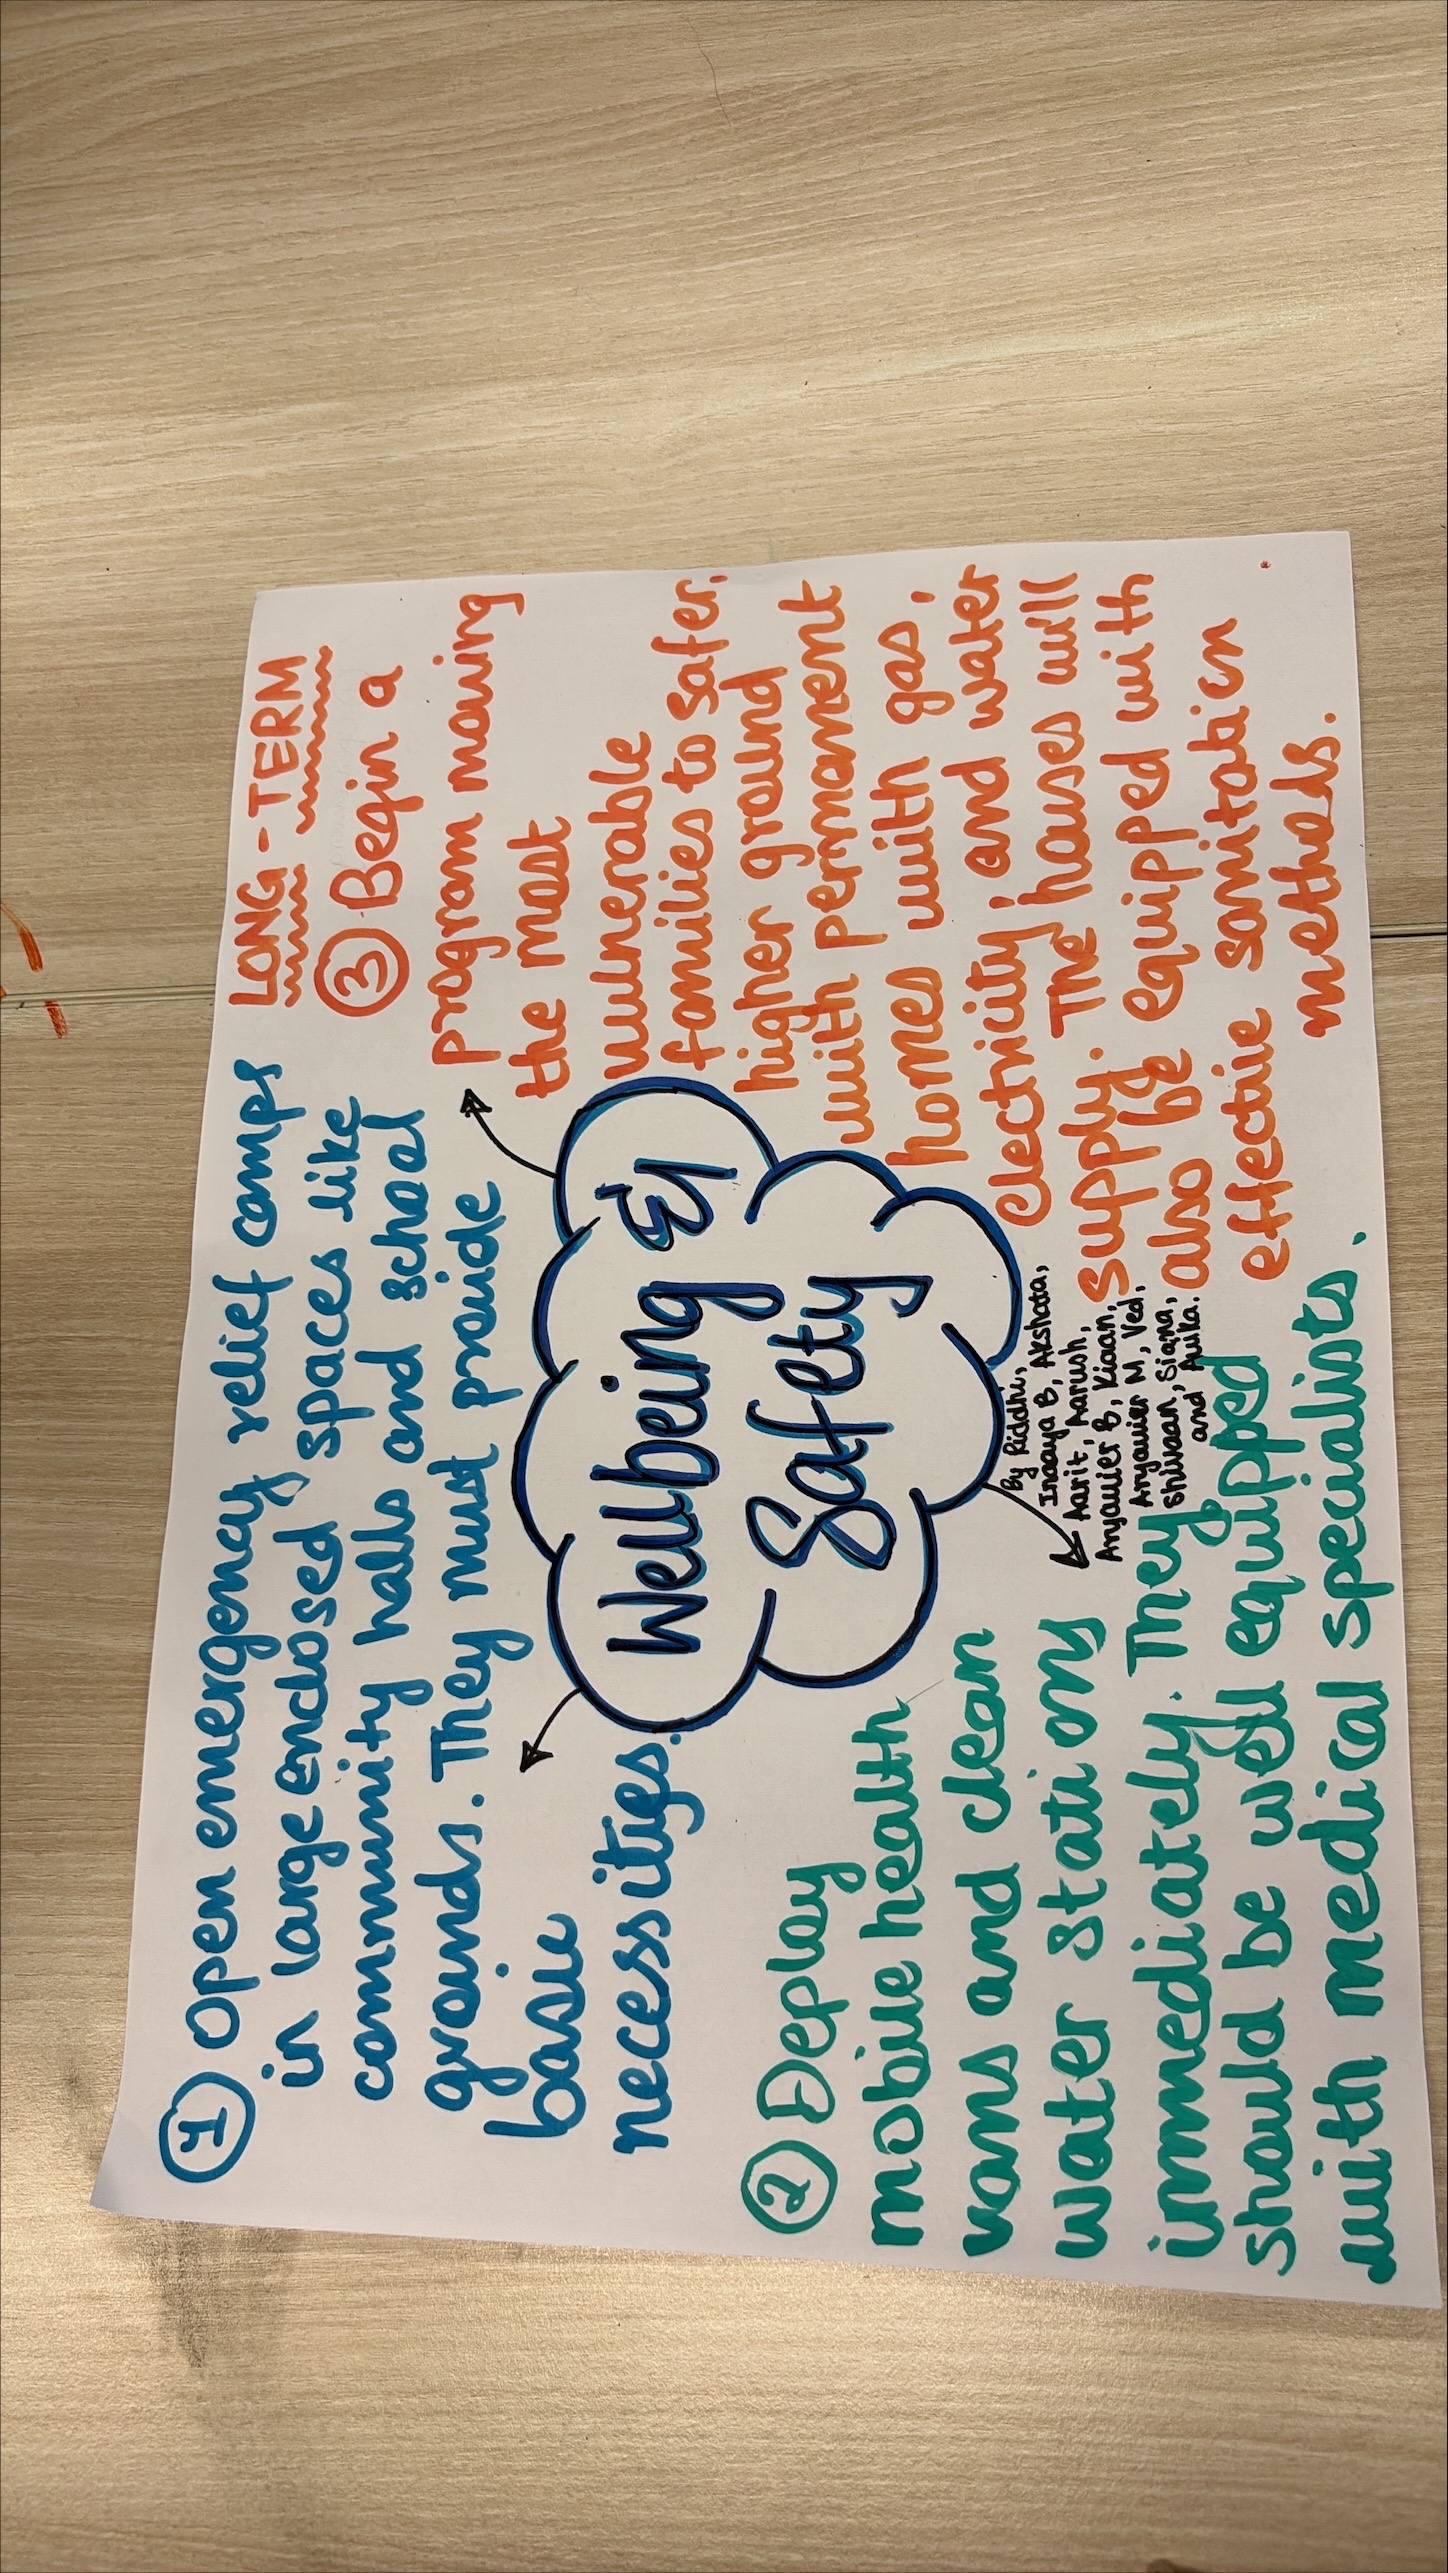 1 Open emergency relief camps
in large enclosed spaces like
community halls and school
grounds. They must provide
basic
necessities.
Wellbeing &
Safety
2 Deploy
mobile health
vans and clean
water stations
immediately. They
should be well equipped
with medical specialists.
LONG-TERM
3 Begin a
program moving
the most
vulnerable
families to safer,
higher ground
with permanent
homes with gas,
electricity, and water
supply. The houses will
also be equipped with
effective sanitation
methods.
By Riddhi,
Inaaya B, Akshata,
Aarit, Aarush,
Aryavier B, Kiaan,
Aryavier M, Ved,
Shivaan,
and Avika.